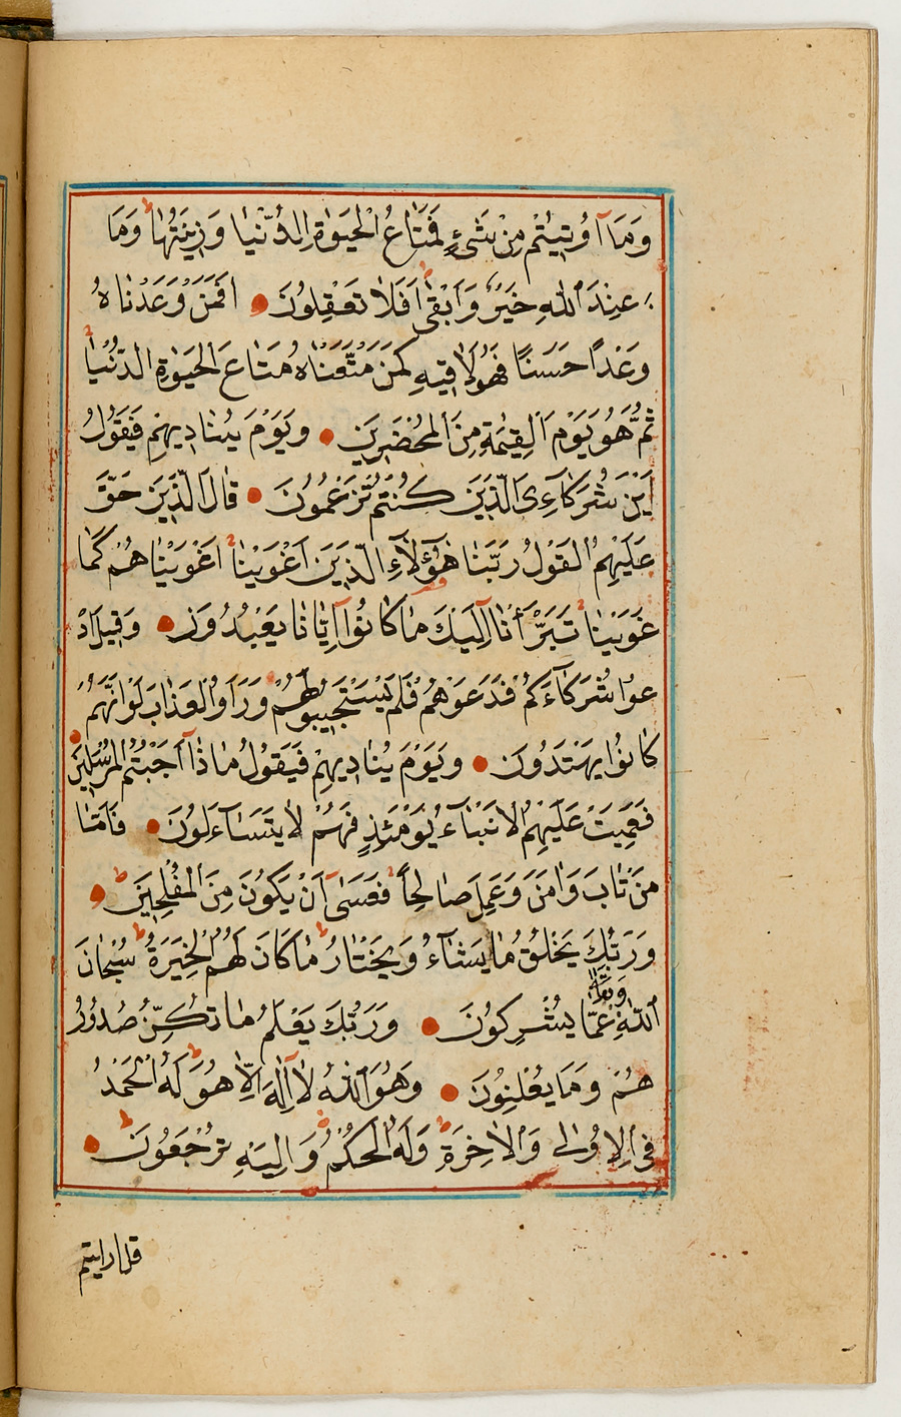 وَمَآ اُو۫تِيتُمْ مِنْ شَىْءٍ فَمَتَاعُ الْحَيٰوةِ الدُّنْيَا وَزِينَتُهَا وَمَا
عِنْدَ اللّٰهِ خَيْرٌ وَاَبْقٰى اَفَلَا تَعْقِلُونَ اَفَمَنْ وَعَدْنَاهُ
وَعْداً حَسَناً فَهُوَ لَاقِيهِ كَمَنْ مَتَّعْنَاهُ مَتَاعَ الْحَيٰوةِ الدُّنْيَا
ثُمَّ هُوَ يَوْمَ الْقِيٰمَةِ مِنَ الْمُحْضَرِينَ وَيَوْمَ يُنَادِيهِمْ فَيَقُولُ
اَيْنَ شُرَكَآءِىَ الَّذِينَ كُنْتُمْ تَزْعُمُونَ قَالَ الَّذِينَ حَقَّ
عَلَيْهِمُ الْقَوْلُ رَبَّنَا هٰٓؤُلَآءِ الَّذِينَ اَغْوَيْنَا اَغْوَيْنَاهُمْ كَمَا
غَوَيْنَا تَبَرَّأْنَا اِلَيْكَ مَا كَانُوٓا اِيَّانَا يَعْبُدُونَ وَقِيلَ ادْ
عُوا شُرَكَآءَكُمْ فَدَعَوْهُمْ فَلَمْ يَسْتَجِيبُوا لَهُمْ وَرَاَوُا الْعَذَابَ لَوْ اَنَّهُمْ
كَانُوا يَهْتَدُونَ وَيَوْمَ يُنَادِيهِمْ فَيَقُولُ مَاذَآ اَجَبْتُمُ الْمُرْسَلِينَ
فَعَمِيَتْ عَلَيْهِمُ الْاَنْبَآءُ يَوْمَئِذٍ فَهُمْ لَا يَتَسَآءَلُونَ فَاَمَّا
مَنْ تَابَ وَاٰمَنَ وَعَمِلَ صَالِحاً فَعَسٰٓى اَنْ يَكُونَ مِنَ الْمُفْلِحِينَ
وَرَبُّكَ يَخْلُقُ مَا يَشَآءُ وَيَخْتَارُ مَا كَانَ لَهُمُ الْخِيَرَةُ سُبْحَانَ
اللّٰهِ وَتَعَالٰى عَمَّا يُشْرِكُونَ وَرَبُّكَ يَعْلَمُ مَا تُكِنُّ صُدُورُ
هُمْ وَمَا يُعْلِنُونَ وَهُوَ اللّٰهُ لَآ اِلٰهَ اِلَّا هُوَ لَهُ الْحَمْدُ
فِى الْاُو۫لٰى وَالْاٰخِرَةِ وَلَهُ الْحُكْمُ وَاِلَيْهِ تُرْجَعُونَ
قل ارايتم